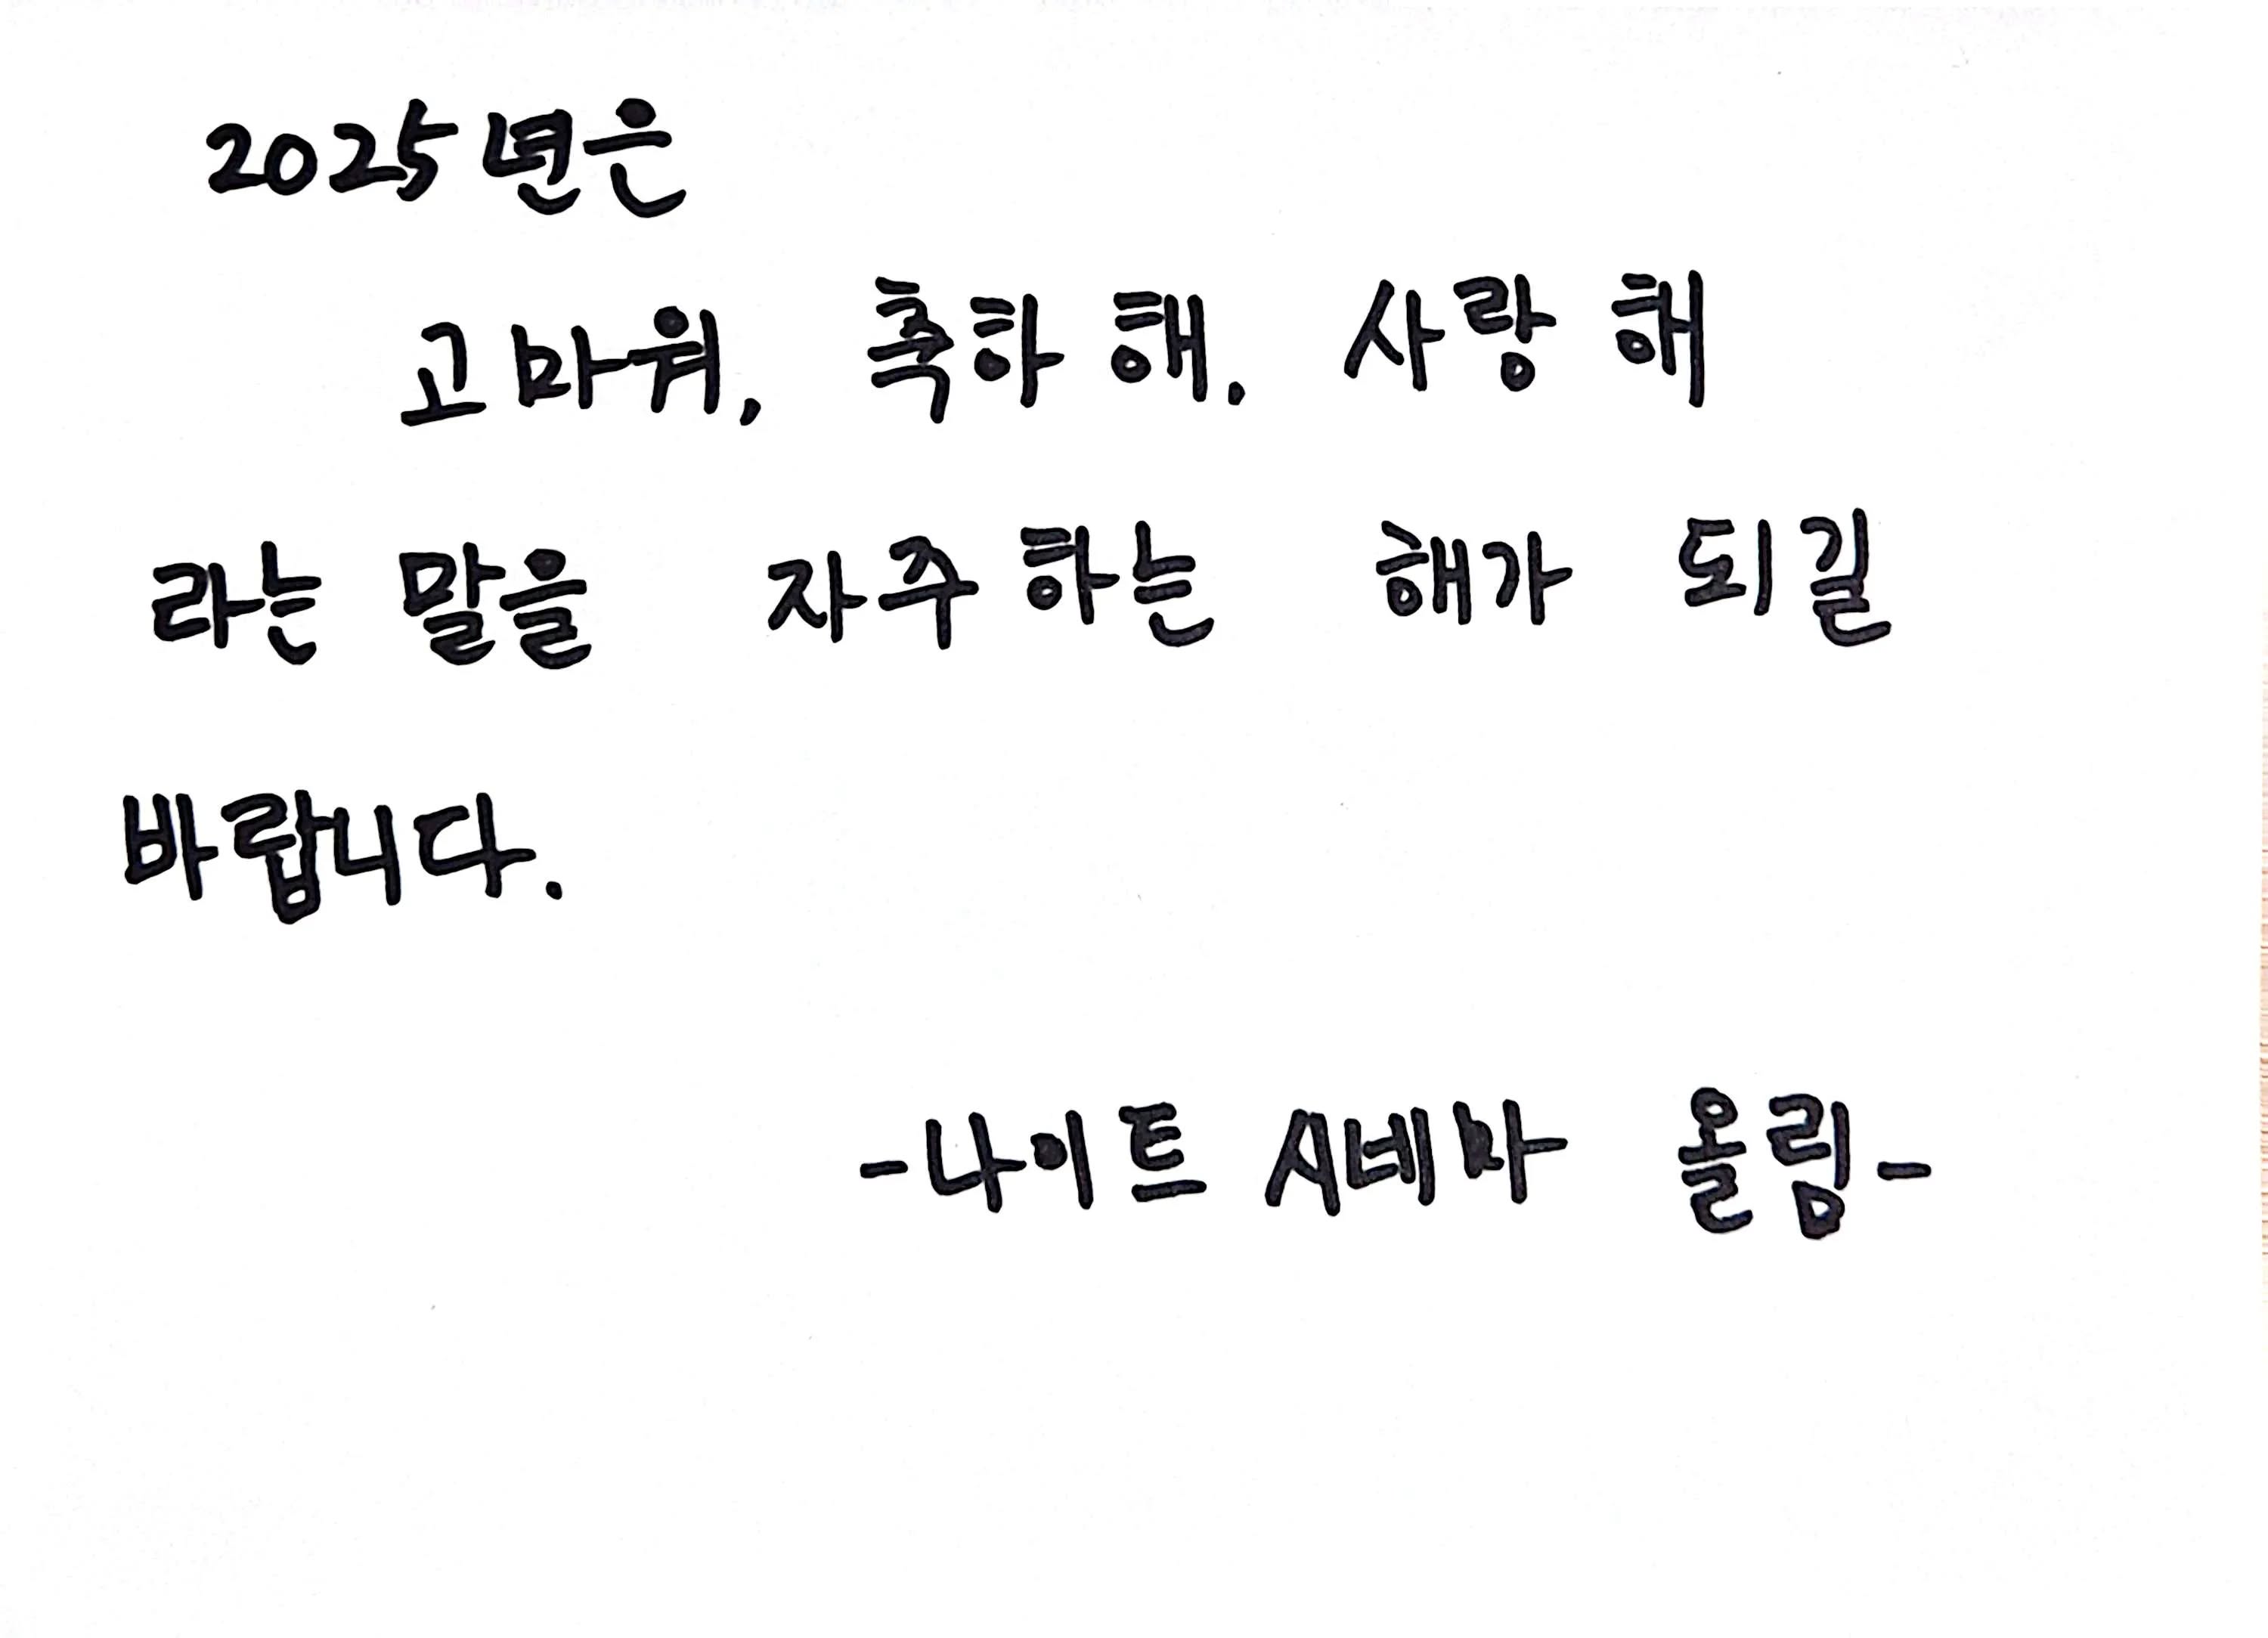 2025년은
고마워, 축하해. 사랑해
라는 말을 자주 하는 해가 되길
바랍니다.
-나이트 시네마 올림-